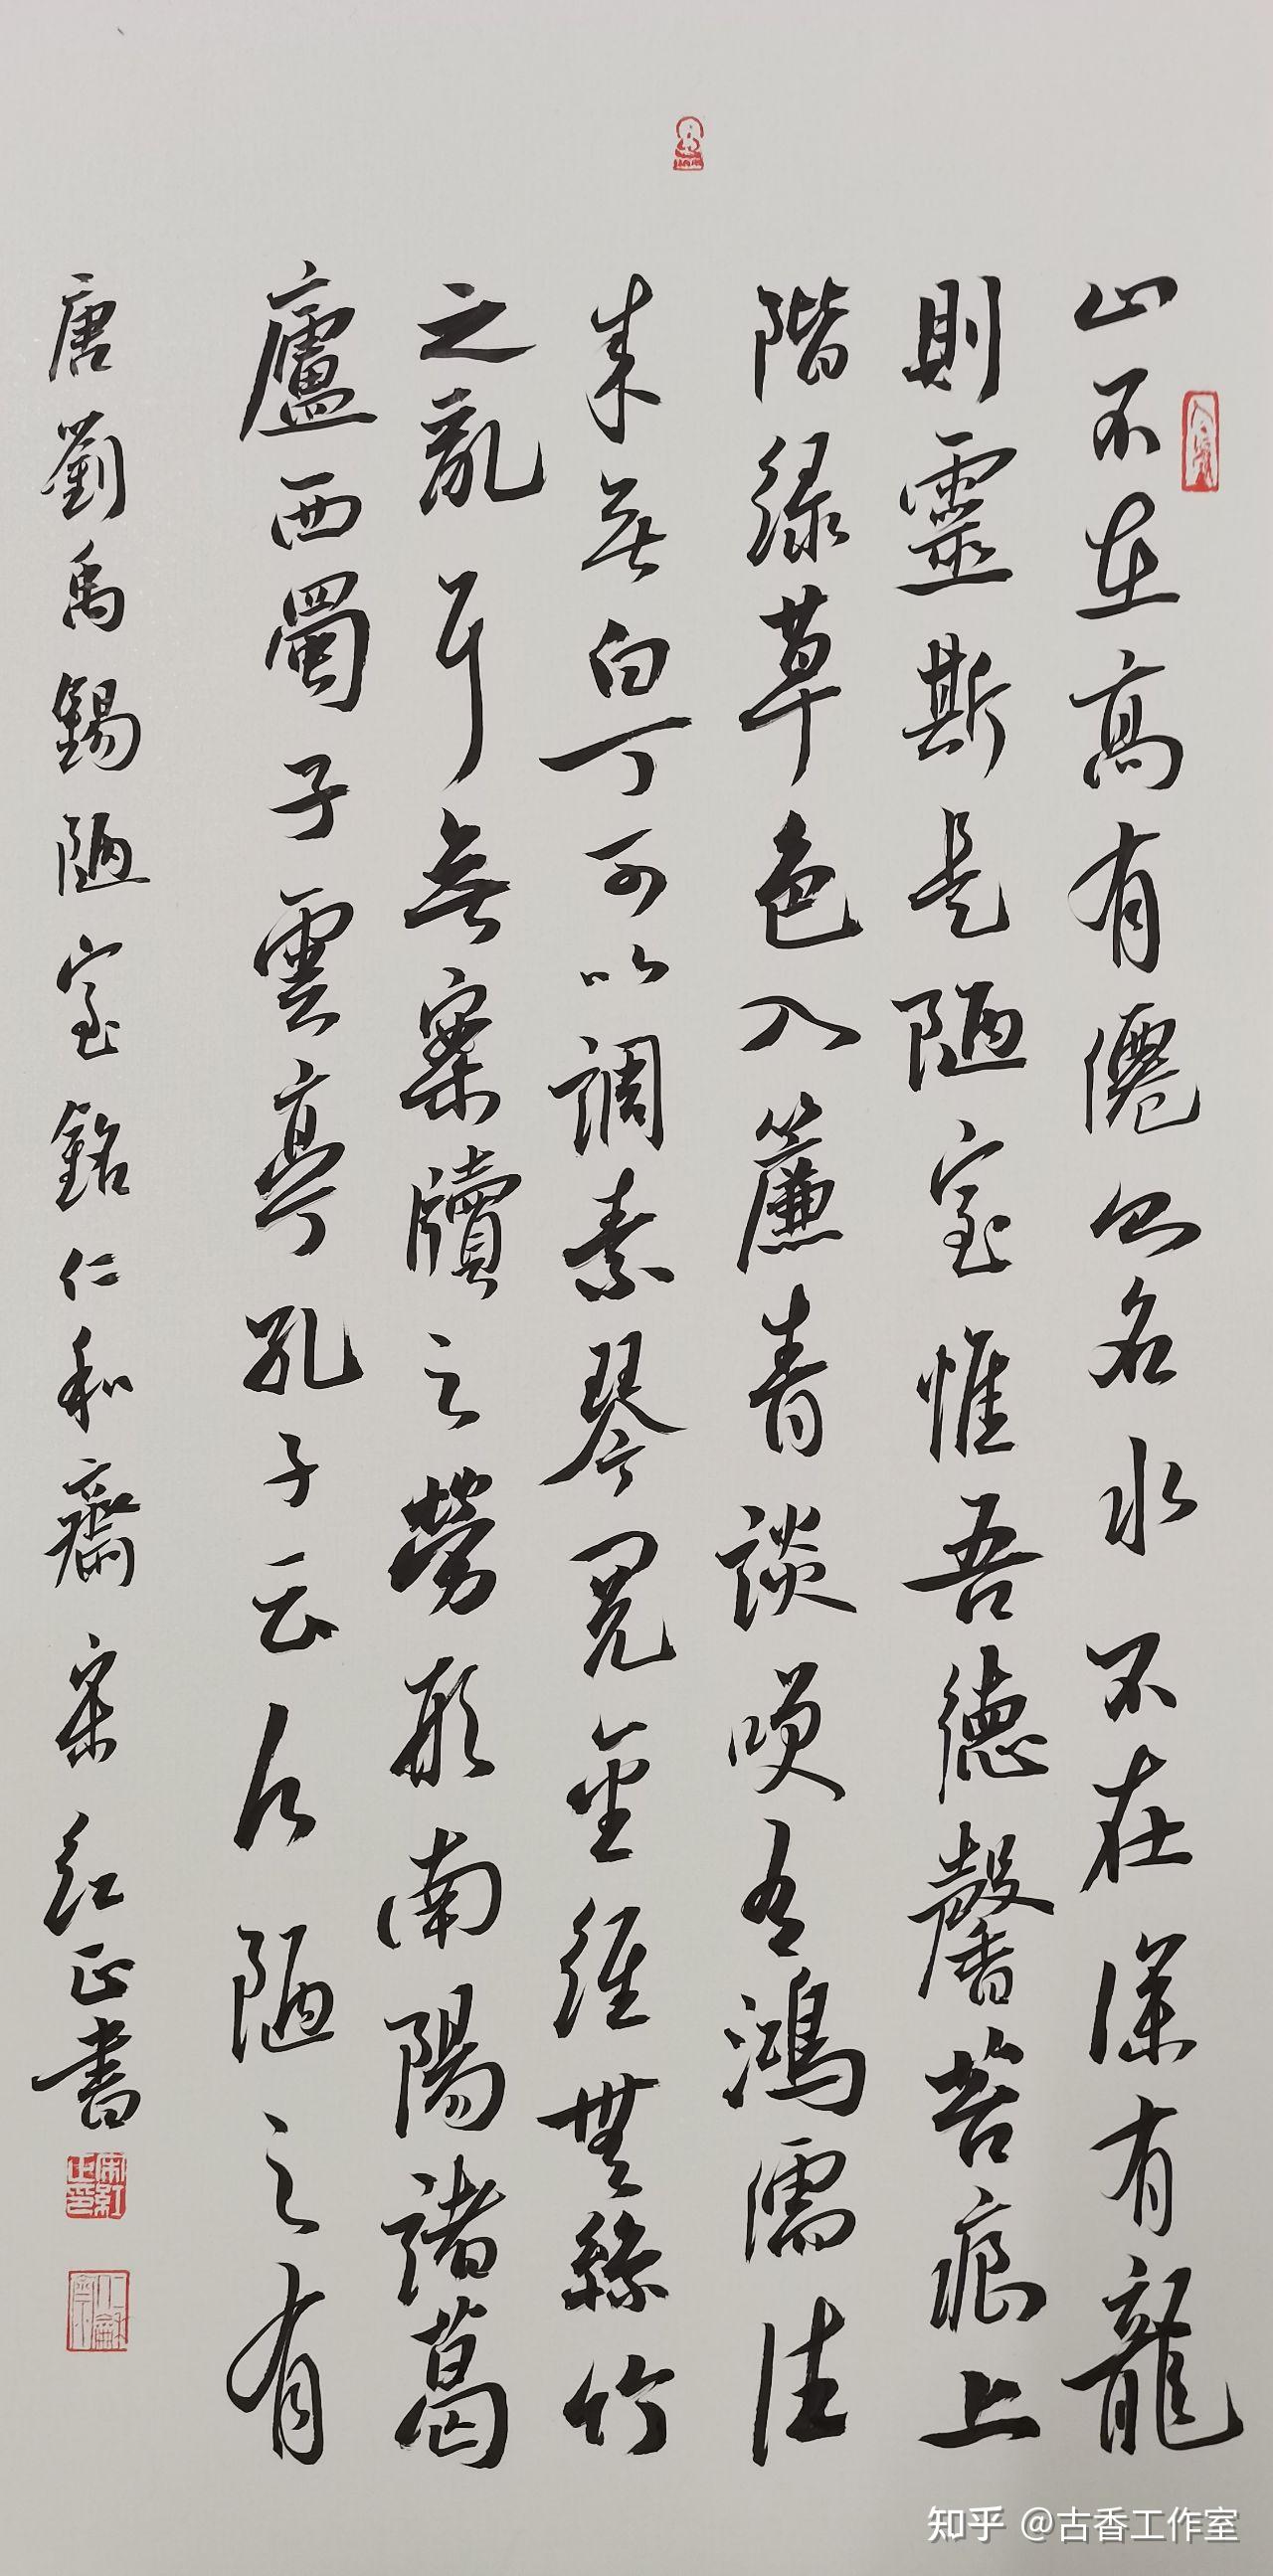 山不在高有僊則名水不在深有龍
則靈斯是陋室惟吾德馨苔痕上
階緑草色入簾青談咲有鴻儒往
来無白丁可以調素琴閲金經無絲竹
之亂耳無案牘之勞形南陽諸葛
廬西蜀子雲亭孔子云何陋之有
唐劉禹錫陋室銘仁和齋宋紅正書
知乎 @古香工作室